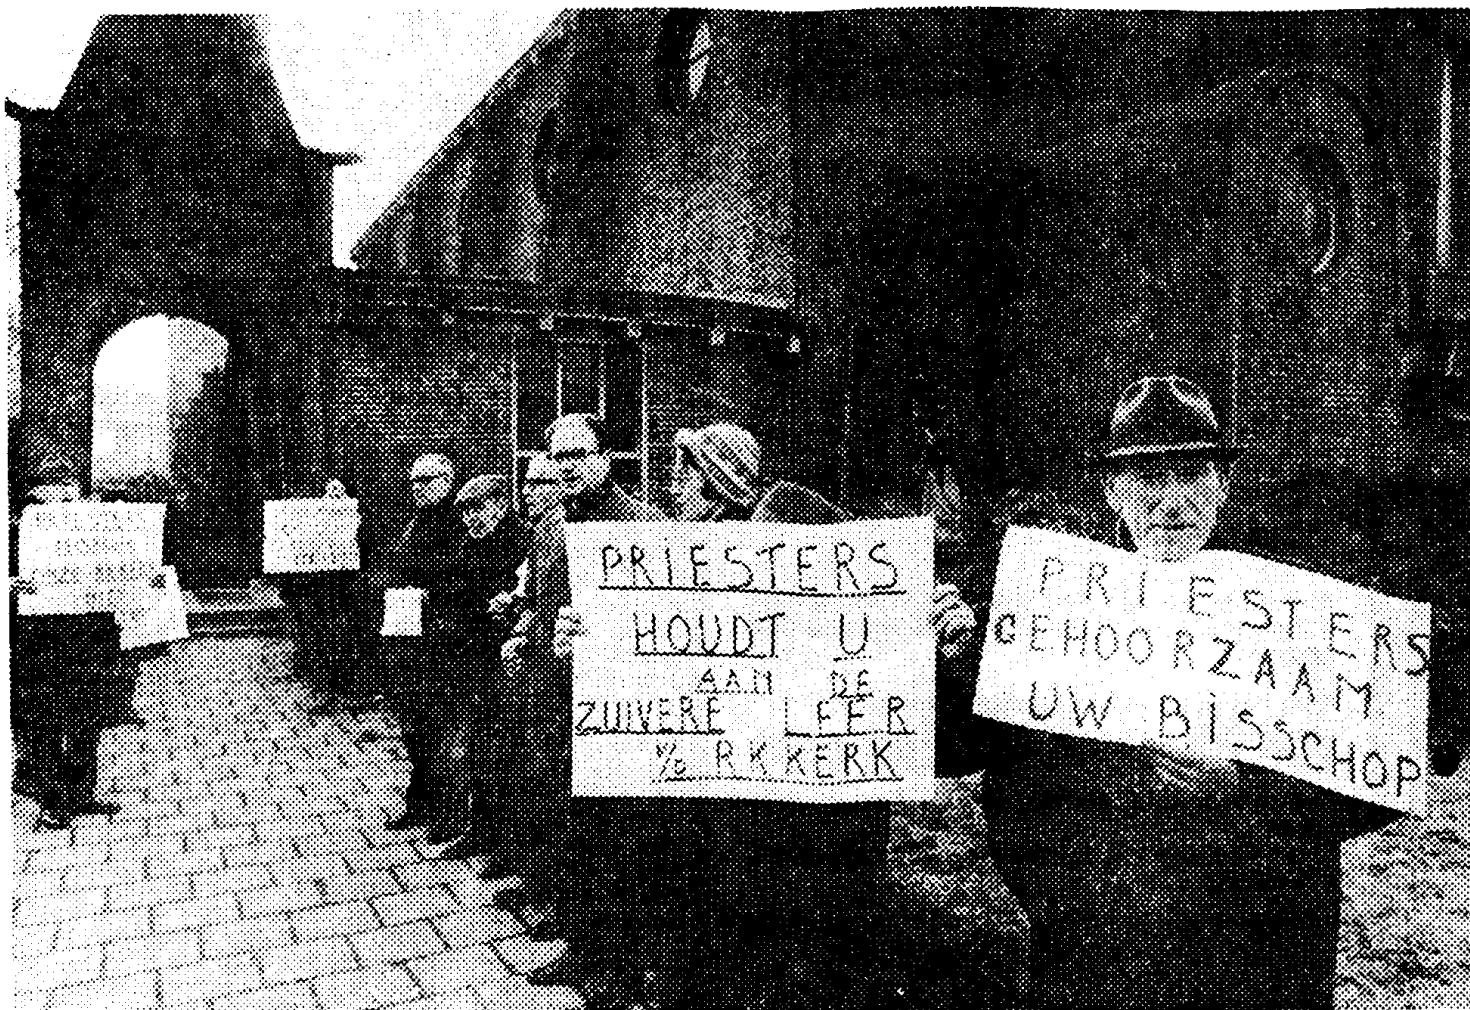 PRIESTERS
HOUDT U
AAN DE
ZUIVERE LEER
V/D RK KERK
PRIESTERS
GEHOORZAAM
UW BISSCHOP